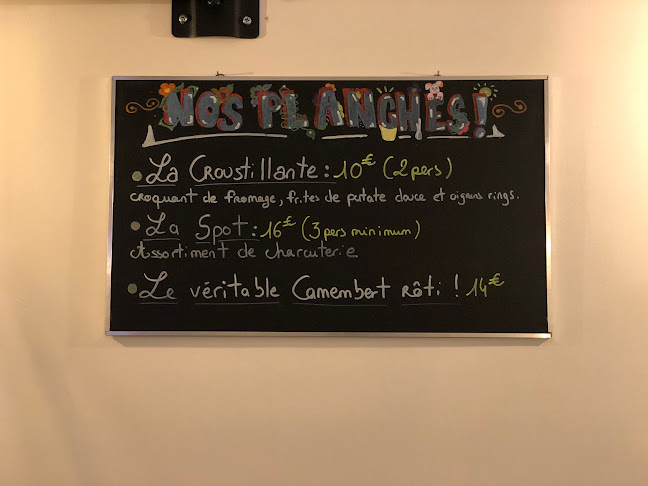 NOS PLANCHES!
La Croustillante : 10€ (2 pers)
croquant de fromage, frites de patate douce et oignons rings.
La Spot : 16€ (3 pers minimum)
Assortiment de charcuterie
Le véritable Camembert Rôti ! 14€